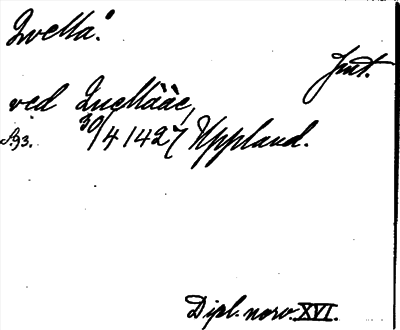 Quellå.
Jmt.
ved Quellààe,
S. 93. 30/4 1427 Uppland.
Dipl. norv. XVI.